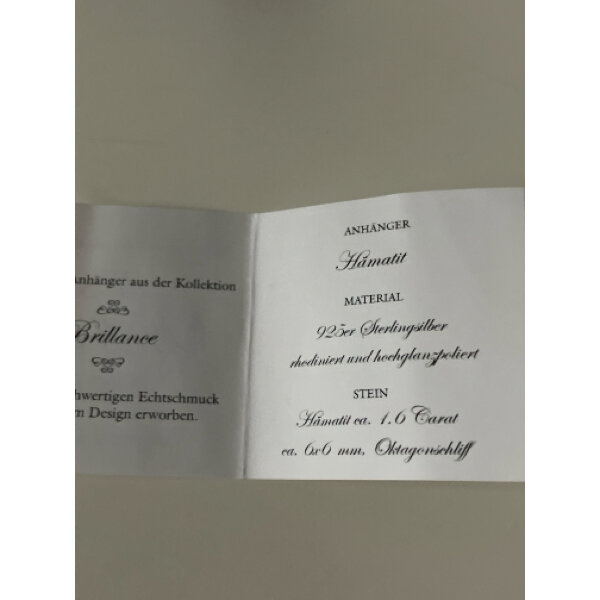 Anhänger aus der Kollektion
Brillance
hwertigen Echtschmuck
m Design erworben.
ANHÄNGER
Hämatit
MATERIAL
925er Sterlingsilber
rhodiniert und hochglanzpoliert
STEIN
Hämatit ca. 1.6 Carat
ca. 6x6 mm, Oktagonschliff